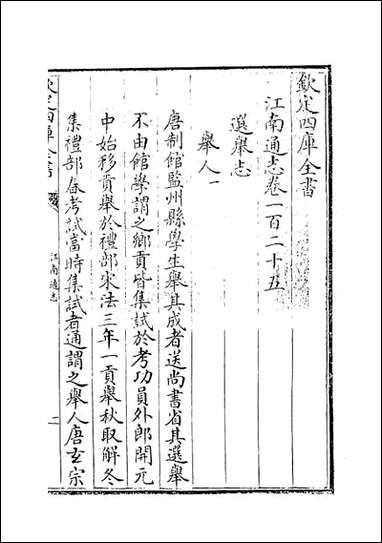 欽定四庫全書
江南通志卷一百二十五
選舉志
舉人一
唐制館監州縣學生舉其成者送尚書省其選舉
不由館學謂之鄉貢皆集試於考功員外郎開元
中始移貢舉於禮部宋法三年一貢舉秋取解冬
集禮部春考試當時集試者通謂之舉人唐玄宗
欽定四庫全書
江南通志